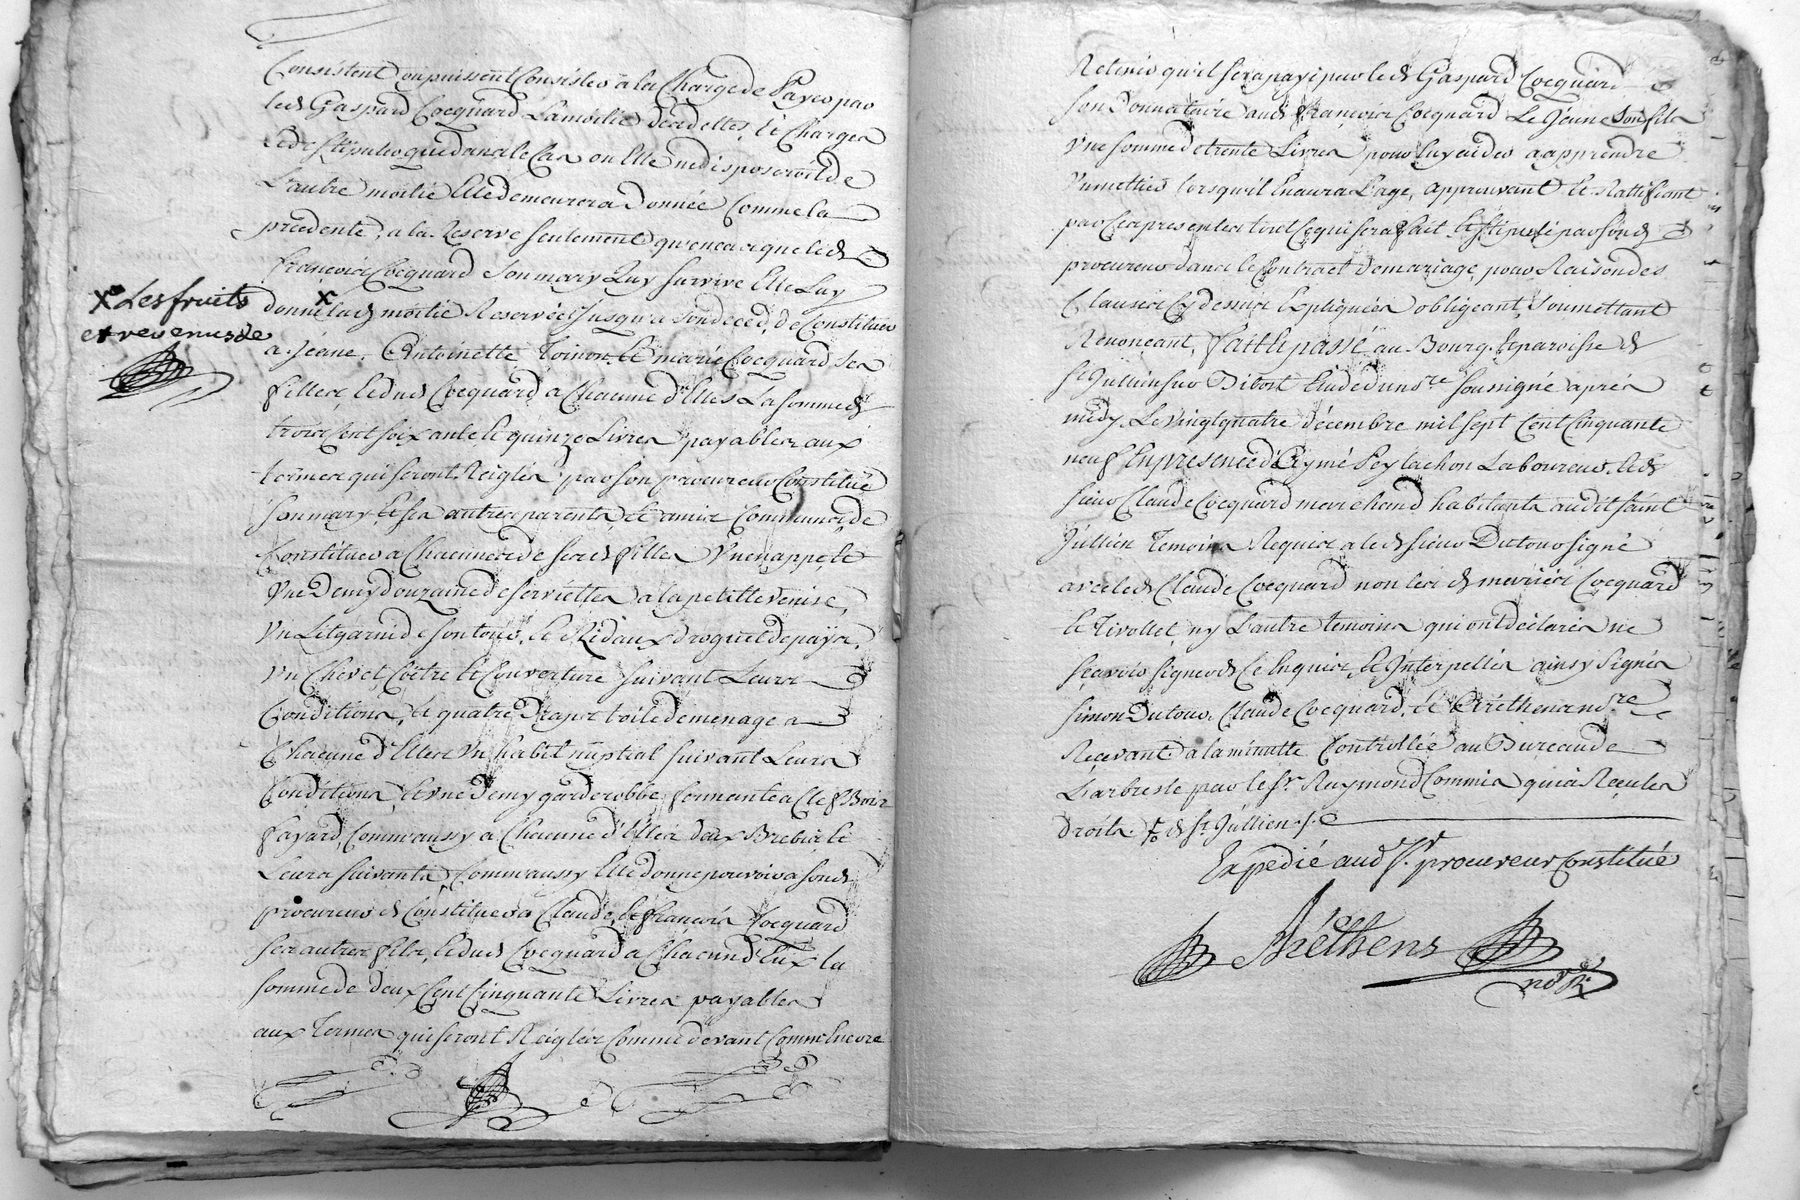 Consistent ou puissent Consister a la Charge de Payer par
led Gaspard Cocquard la moitié de ses dettes, et Charges
et de stipuler que dans le Cas ou Elle ne disposeroit de
L'autre moitié Elle demeurera Donnée Comme la
precedente, a la Reserve seulement qu'en cas que led
françois Cocquard son mary Luy survive Elle Luy
donne X lad moitié Reservée Jusqu'a son deced, de Constituer
X Les fruits
et revenus de
a Jeane, Antoinette, Toinon, et marie Cocquard ses
filles, et dud Cocquard a Chacune d'Elles La somme de
trois Cent soixante et quinze Livres payables aux
termes qui seront Reiglés par son procureur Constitué
son mary et ses autres parents, et amis Communs de
Constituer a Chacune de ses filles Une nappe, et
Une Demy douzaine de serviettes a la petitte venise,
Un Lit garni de son tour, et Ridaux droguet de pays,
Un Chevet, Coëtre et Couverture suivant Leurs
Conditions, et quatre Draps toile de menage a
Chacune d'Elles Un habit nuptial suivant Leurs
Conditions et une Demy garderobbe fermante a Clef Bois
fayard, Comm'aussy a Chacune d'Elles deux Brebis et
Leurs suivants, Comm'aussy Elle donne pouvoir a sond
procureur de Constituer a Claude, et françois Cocquard
ses autres fils, et dud Cocquard a Chacun d'Eux la
somme de deux Cent Cinquante Livres payables
aux Termes qui seront Reiglés Comme devant Comm'Encore
Retenir qu'il sera payé par led Gaspard Cocquard
son Donnataire aud François Cocquard Le Jeune son fils
Une somme de trente Livres pour luy aider a apprendre
Un mettier lorsqu'il En aura L'age, approuvant et Rattifiant
par Ces presentes tout Ce qui sera fait et stipulé par sond
procureur dans le Contract de mariage, pour Raison des
Clauses Cy dessus Expliquées obligeant, soumettant
Renonçant, fait et passé au Bourg et paroisse de
St Jullien sur Bibost Etude du nre soussigné aprés
midy Le vingt quatre décembre mil sept Cent Cinquante
neuf En presence d'Aymé Peylachon Laboureur, et de
sieur Claude Cocquard marchand habitants audit saint
Jullien Temoins Requis a led sieur Dutour signé
avec led Claude Cocquard non les d mariés Cocquard
et Tivollet ny L'autre temoins qui ont déclarés ne
sçavoir signer de Ce Enquis, et Interpellés ainsy signés
Simon Dutour, Claude Cocquard, et Préthenand re
Recevant, a la minutte Controllée au Bureau de
Larbresle par le Sr Raymond Commis qui a Reçu les
droits. d St Jullien
Expedié aud Sr procureur Constitué